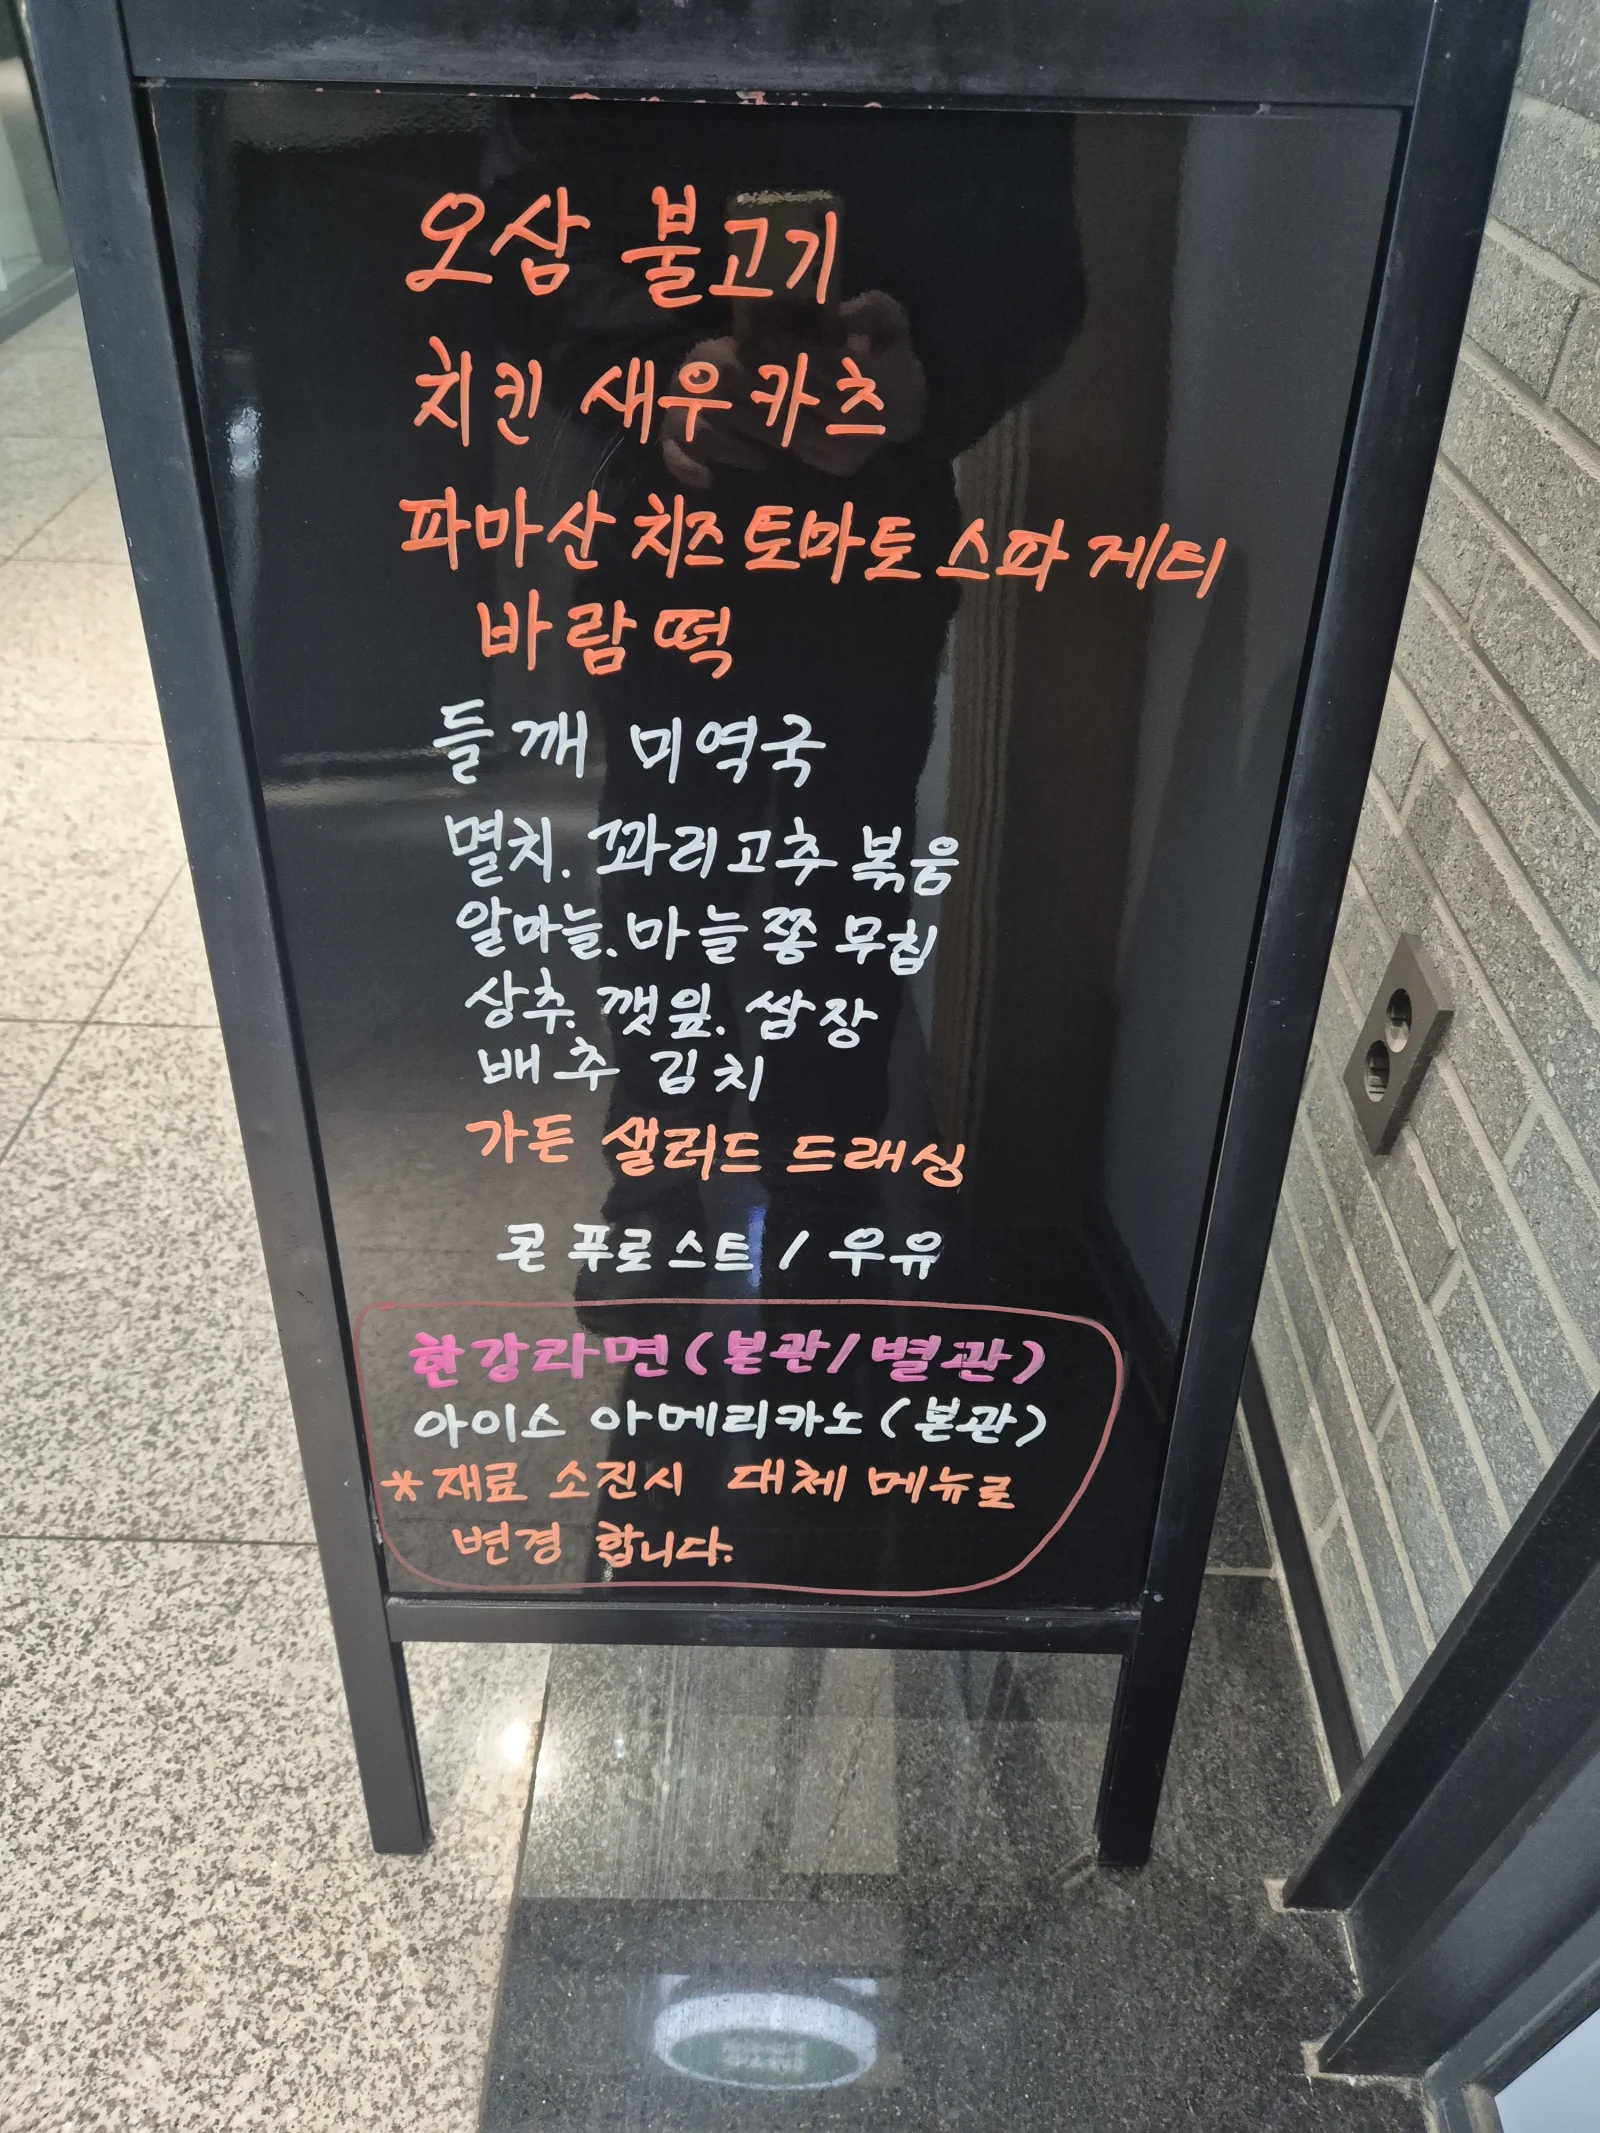 오삼 불고기
치킨 새우 카츠
파마산 치즈 토마토 스파게티
바람떡
들깨 미역국
멸치. 꽈리고추 볶음
알마늘. 마늘쫑 무침
상추. 깻잎. 쌈장
배추 김치
가든 샐러드 드래싱
콘 푸로스트 / 우유
한강라면 (본관/별관)
아이스 아메리카노 (본관)
*재료 소진시 대체 메뉴로
변경 합니다.